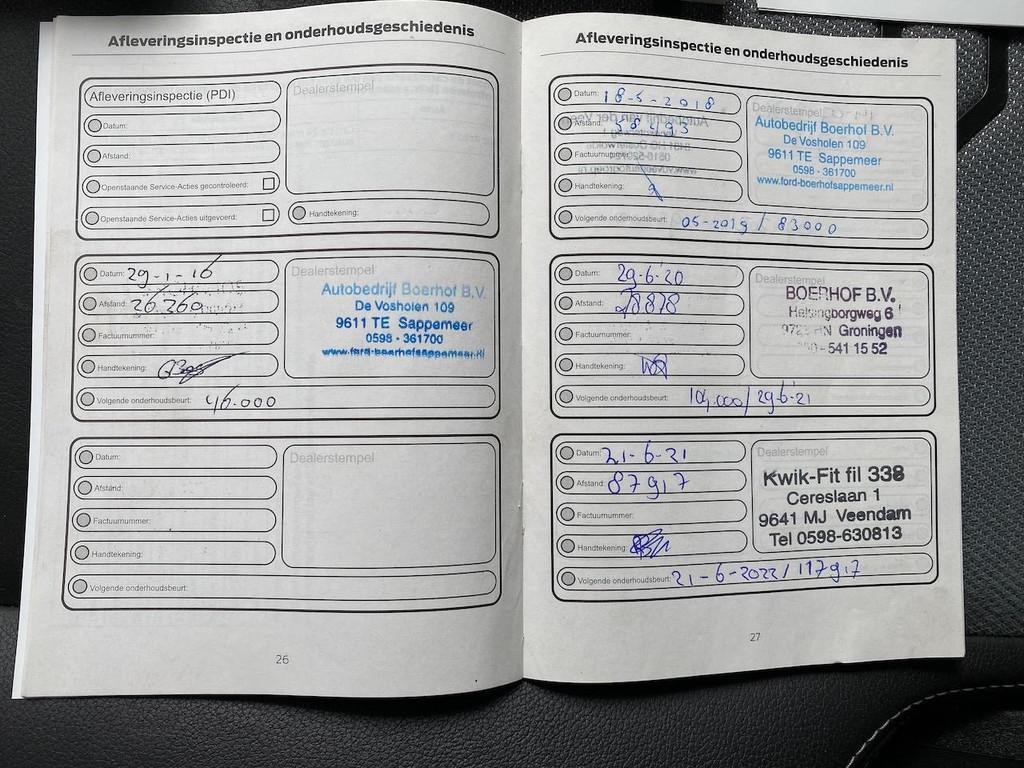 Afleveringsinspectie en onderhoudsgeschiedenis
Afleveringsinspectie (PDI)
Dealerstempel
Datum:
Afstand:
Openstaande Service-Acties gecontroleerd:
Openstaande Service-Acties uitgevoerd:
Handtekening:
Datum: 29-1-16
Afstand: 26.260
Factuurnummer:
Handtekening:
Volgende onderhoudsbeurt: 46.000
Dealerstempel
Autobedrijf Boerhof B.V.
De Vosholen 109
9611 TE Sappemeer
0598 - 361700
www.ford-boerhofsappemeer.nl
Datum:
Afstand:
Factuurnummer:
Handtekening:
Volgende onderhoudsbeurt:
Dealerstempel
26
Afleveringsinspectie en onderhoudsgeschiedenis
Datum: 18-5-2018
Afstand:
Factuurnummer:
Handtekening:
Volgende onderhoudsbeurt: 05-2019 / 83000
Dealerstempel
Autobedrijf Boerhof B.V.
De Vosholen 109
9611 TE Sappemeer
0598 - 361700
www.ford-boerhofsappemeer.nl
Datum: 29-6-'20
Afstand: 78878
Factuurnummer:
Handtekening:
Volgende onderhoudsbeurt: 104.000/29-6-'21
Dealerstempel
BOERHOF B.V.
Helsingborgweg 6
Groningen
- 541 15 52
Datum: 21-6-21
Afstand: 87917
Factuurnummer:
Handtekening:
Volgende onderhoudsbeurt: 21-6-2022/117917
Dealerstempel
Kwik-Fit fil 338
Cereslaan 1
9641 MJ Veendam
Tel 0598-630813
27